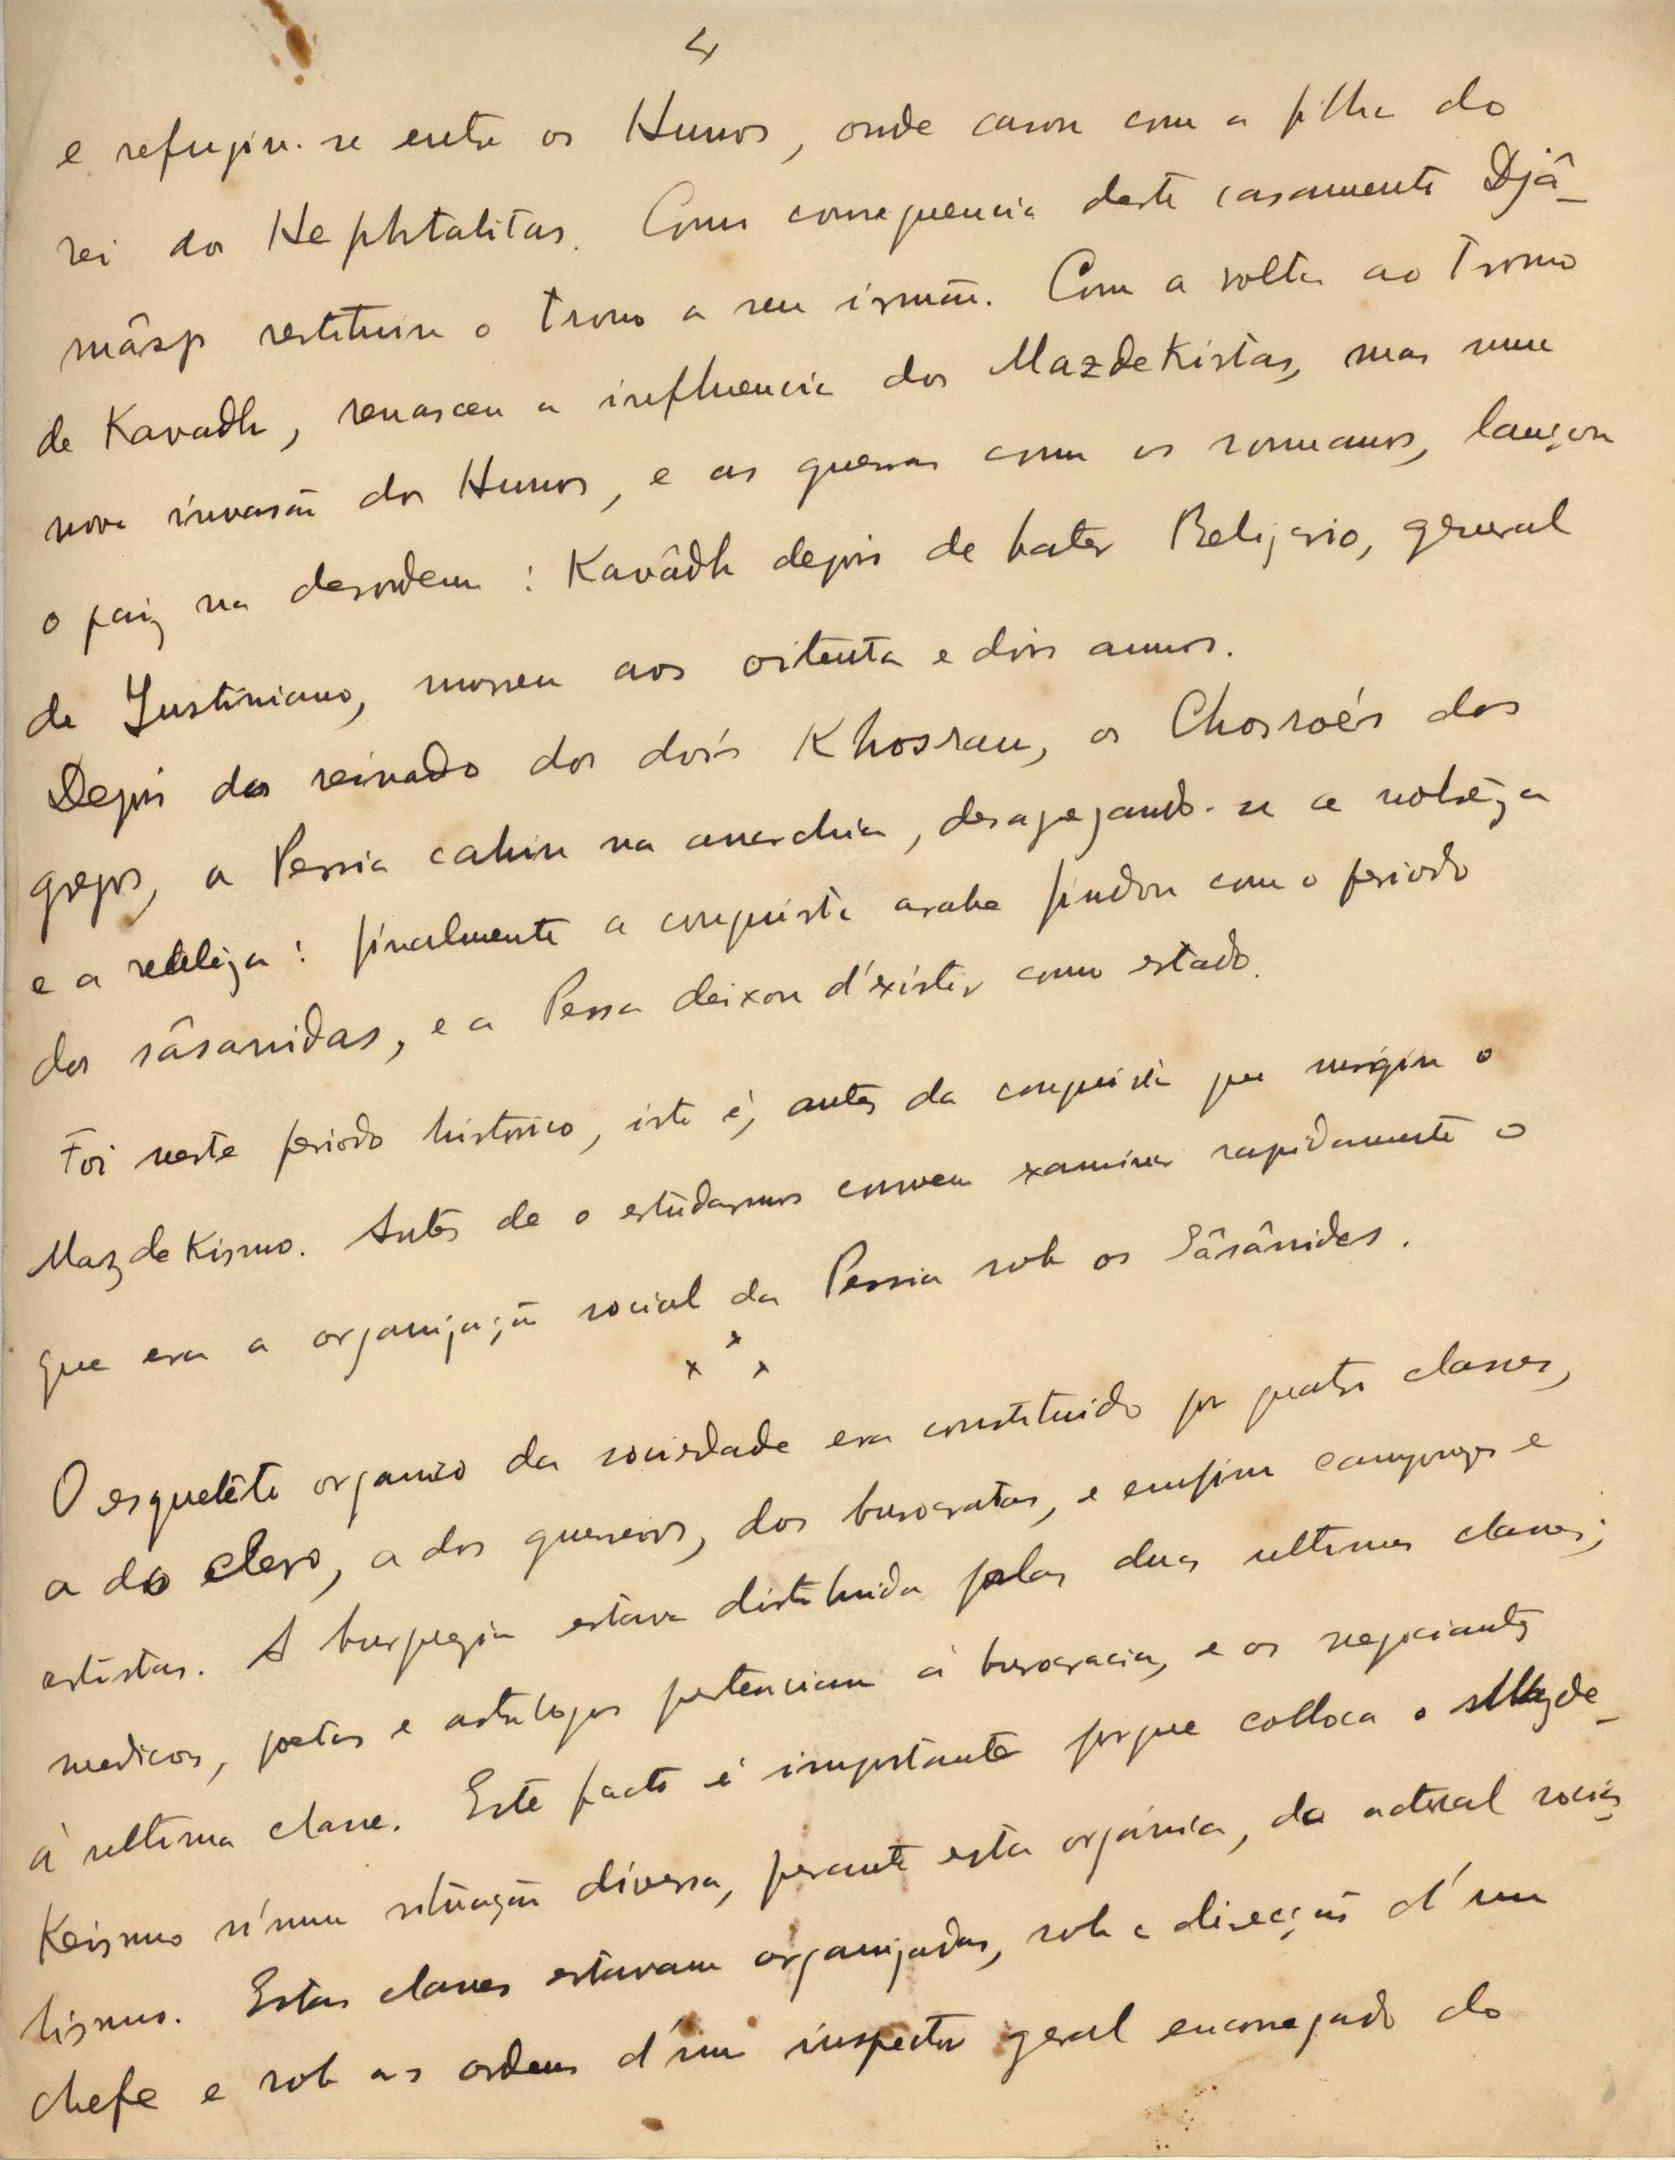 4
e refugiu-se entre os Hunos, onde casou com a filha do
rei dos Hephtalitas. Como consequencia deste casamento Djâ-
mâsp restituiu o trono a seu irmão. Com a volta ao trono
de Kavadh, renasceu a influencia dos Mazdekistas, mas uma
nova invasão dos Hunos, e as guerras com os romanos, lançou
o paiz na desordem: Kavâdh depois de bater Belijario, general
de Justiniano, morreu aos oitenta e dois annos.
Depois do reinado dos dois Khosrau, os Chosroés dos
gregos, a Persia cahiu na anarchia, desapegando-se a nobrêza
e a realêza: finalmente a conquista arabe findou com o periodo
dos sâsanidas, e a Persa deixou d'existir como estado.
Foi neste periodo historico, isto é, antes da conquista que surgiu o
Mazdekismo. Antes de o estudarmos convem examinar rapidamente o
que era a organização social da Persia sob os Sâsânidas.
x x x
O esquelêto organico da sociedade era constituido por quatro classes,
a do clero, a dos guerreiros, dos burocratas, e emfim camponezes e
artistas. A burguezia estava distribuida pelas duas ultimas classes;
medicos, poetas e astrologos pertenciam á burocracia, e os negociantes
á ultima classe. Este facto é importante porque colloca o Mazde-
keismo n'uma situação diversa, perante esta orgánica, do actual socia-
lismo. Estas classes estavam organizadas, sob a direcção d'um
chefe e sob as ordens d'um inspector geral encarregado do